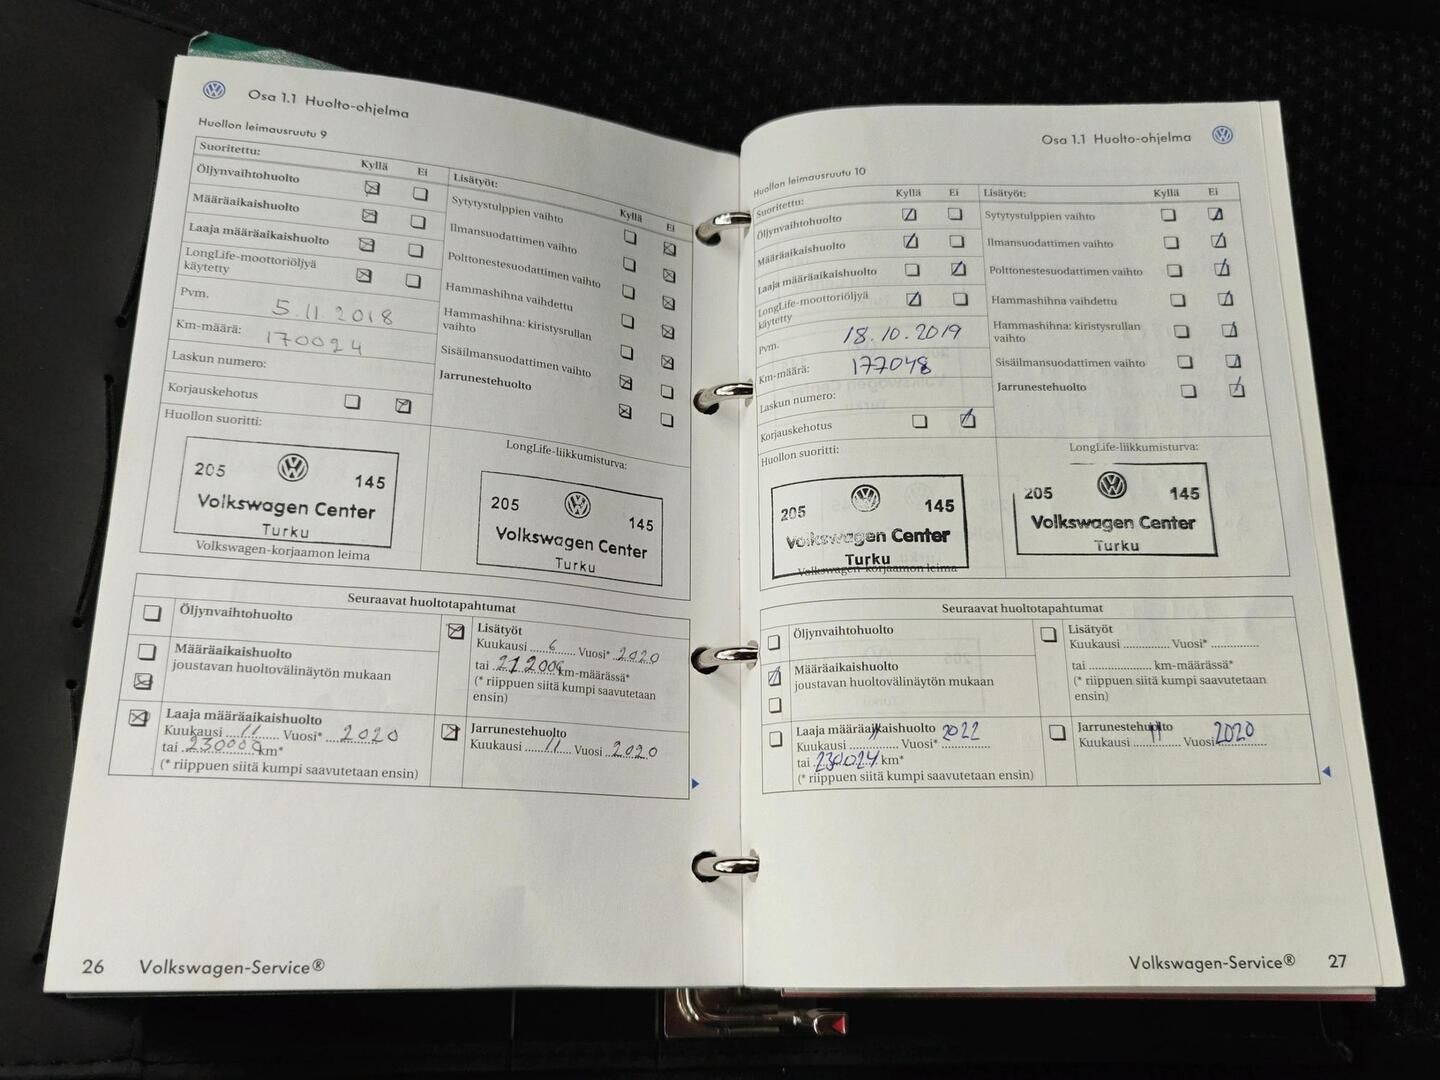 Osa 1.1 Huolto-ohjelma
Huollon leimausruutu 9
Suoritettu:
Kyllä Ei
Öljynvaihtohuolto
Määräaikaishuolto
Laaja määräaikaishuolto
LongLife-moottoriöljyä
käytetty
Pvm.
5.11.2018
Km-määrä: 170024
Laskun numero:
Korjauskehotus
Huollon suoritti:
205 145
Volkswagen Center
Turku
Volkswagen-korjaamon leima
Lisätyöt:
Kyllä Ei
Sytytystulppien vaihto
Ilmansuodattimen vaihto
Polttonestesuodattimen vaihto
Hammashihna vaihdettu
Hammashihna: kiristysrullan
vaihto
Sisäilmansuodattimen vaihto
Jarrunestehuolto
LongLife-liikkumisturva:
205 145
Volkswagen Center
Turku
Seuraavat huoltotapahtumat
Öljynvaihtohuolto
Määräaikaishuolto
joustavan huoltovälinäytön mukaan
Laaja määräaikaishuolto
Kuukausi 11 Vuosi* 2020
tai 230000 km*
(* riippuen siitä kumpi saavutetaan ensin)
Lisätyöt
Kuukausi 6 Vuosi* 2020
tai km-määrässä*
(* riippuen siitä kumpi saavutetaan
ensin)
Jarrunestehuolto
Kuukausi 11 Vuosi 2020
26 Volkswagen-Service®
Osa 1.1 Huolto-ohjelma
Huollon leimausruutu 10
Suoritettu:
Kyllä Ei
Öljynvaihtohuolto
Määräaikaishuolto
Laaja määräaikaishuolto
LongLife-moottoriöljyä
käytetty
Pvm. 18.10.2019
Km-määrä: 177048
Laskun numero:
Korjauskehotus
Huollon suoritti:
205 145
Volkswagen Center
Turku
Volkswagen-korjaamon leima
Lisätyöt:
Kyllä Ei
Sytytystulppien vaihto
Ilmansuodattimen vaihto
Polttonestesuodattimen vaihto
Hammashihna vaihdettu
Hammashihna: kiristysrullan
vaihto
Sisäilmansuodattimen vaihto
Jarrunestehuolto
LongLife-liikkumisturva:
205 145
Volkswagen Center
Turku
Seuraavat huoltotapahtumat
Öljynvaihtohuolto
Määräaikaishuolto
joustavan huoltovälinäytön mukaan
Laaja määräaikaishuolto
Kuukausi 11 Vuosi* 2022
tai 230024 km*
(* riippuen siitä kumpi saavutetaan ensin)
Lisätyöt
Kuukausi Vuosi*
tai km-määrässä*
(* riippuen siitä kumpi saavutetaan
ensin)
Jarrunestehuolto
Kuukausi 11 Vuosi 2020
Volkswagen-Service® 27